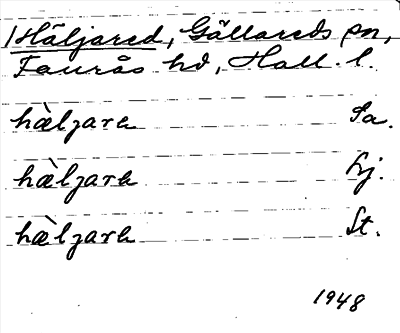 Häljared, Gällareds sn,
Faurås hd, Hall. l.
hæ̀ljara Sa.
hæ̀ljara Lj.
hæ̀ljara St.
1948